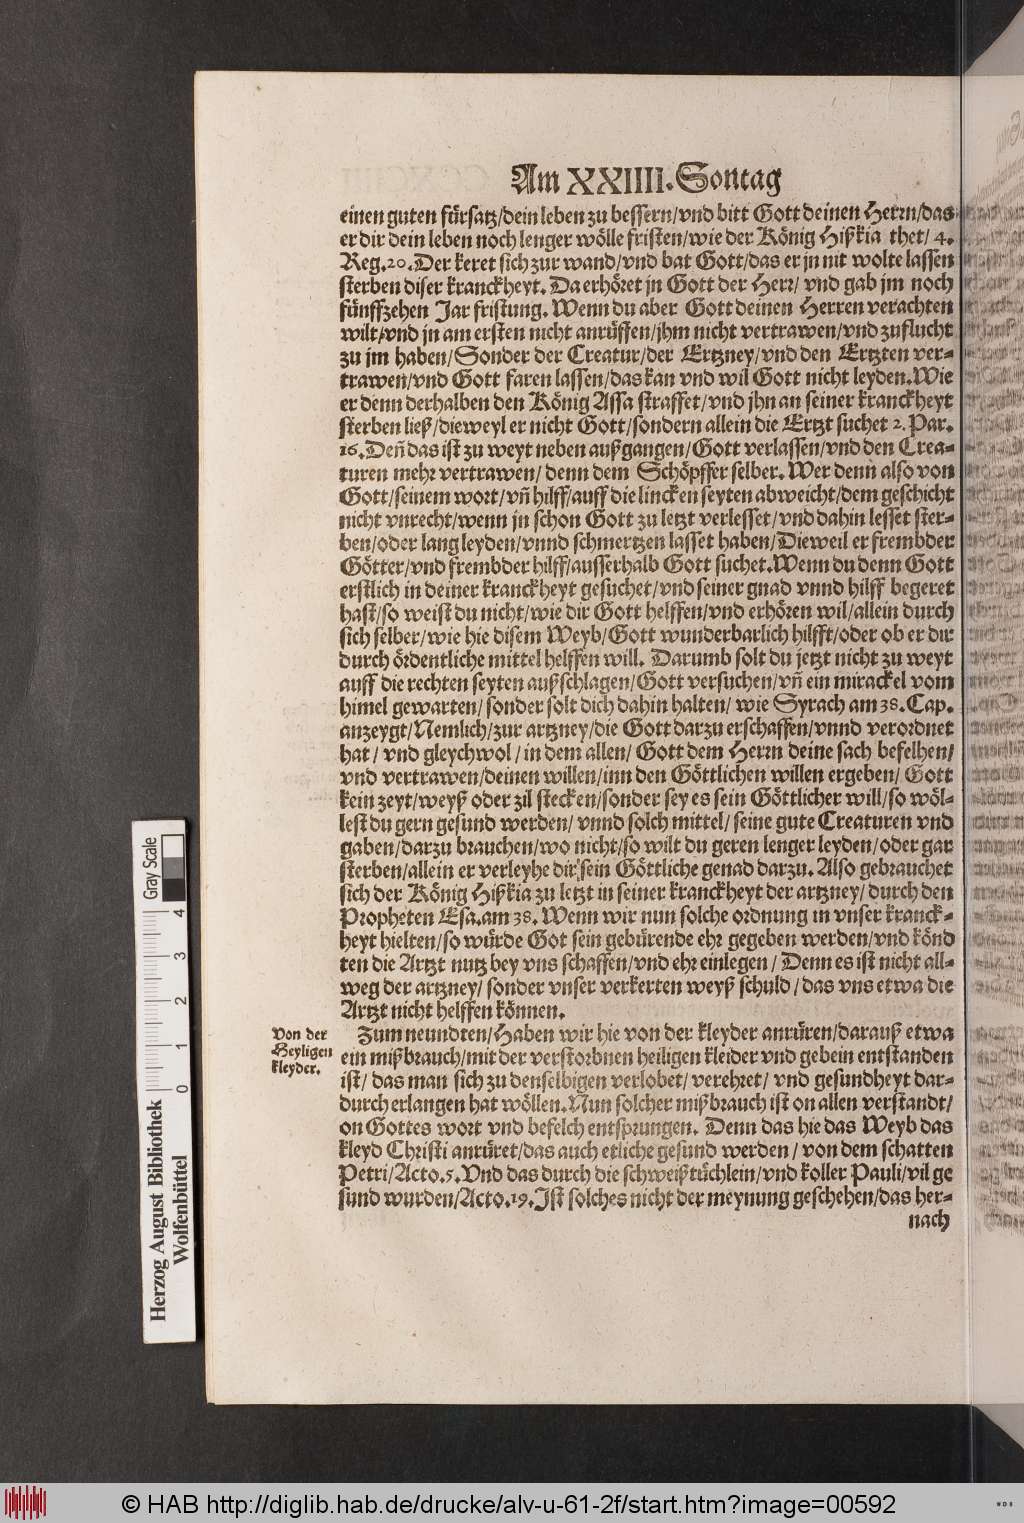 Am XXIIII. Sontag
einen guten fürsatz/dein leben zu bessern/vnd bitt Gott deinen Herrn/das
er dir dein leben noch lenger wölle fristen/wie der König Hißkia thet/ 4.
Reg.20. Der keret sich zur wand/vnd bat Gott/das er jn nit wolte lassen
sterben diser kranckheyt. Da erhöret jn Gott der Herr/ vnd gab jm noch
fünffzehen Jar fristung. Wenn du aber Gott deinen Herren verachten
wilt/vnd jn am ersten nicht anrüffen/jhm nicht vertrawen/vnd zuflucht
zu jm haben/Sonder der Creatur/der Ertzney/vnd den Ertzten ver-
trawen/vnd Gott faren lassen/das kan vnd wil Gott nicht leyden. Wie
er denn derhalben den König Assa straffet/vnd jhn an seiner kranckheyt
sterben ließ/dieweyl er nicht Gott/sondern allein die Ertzt suchet 2. Par.
16. Deñ das ist zu weyt neben außgangen/Gott verlassen/vnd den Crea-
turen mehr vertrawen/ denn dem Schöpffer selber. Wer denn also von
Gott/seinem wort/vñ hilff/auff die lincken seyten abweicht/dem geschicht
nicht vnrecht/wenn jn schon Gott zu letzt verlesset/vnd dahin lesset ster-
ben/oder lang leyden/vnnd schmertzen lasset haben/Dieweil er frembder
Götter/vnd frembder hilff/ausserhalb Gott suchet. Wenn du denn Gott
erstlich in deiner kranckheyt gesuchet/vnd seiner gnad vnnd hilff begeret
hast/so weist du nicht/wie dir Gott helffen/vnd erhören wil/allein durch
sich selber/wie hie disem Weyb/Gott wunderbarlich hilfft/oder ob er dir
durch ördentliche mittel helffen will. Darumb solt du jetzt nicht zu weyt
auff die rechten seyten außschlagen/Gott versuchen/vñ ein mirackel vom
himel gewarten/ sonder solt dich dahin halten/ wie Syrach am 38. Cap.
anzeygt/Nemlich/zur artzney/die Gott darzu erschaffen/vnnd verordnet
hat/ vnd gleychwol/in dem allen/ Gott dem Herrn deine sach befelhen/
vnd vertrawen/deinen willen/inn den Göttlichen willen ergeben/ Gott
kein zeyt/weyß oder zil stecken/sonder sey es sein Göttlicher will/so wöl-
lest du gern gesund werden/ vnnd solch mittel/ seine gute Creaturen vnd
gaben/darzu brauchen/wo nicht/so wilt du geren lenger leyden/oder gar
sterben/allein er verleyhe dir sein Göttliche genad darzu. Also gebrauchet
sich der König Hißkia zu letzt in seiner kranckheyt der artzney/ durch den
Propheten Esa. am 38. Wenn wir nun solche ordnung in vnser kranck-
heyt hielten/so würde Got sein gebürende ehr gegeben werden/vnd könd
ten die Artzt nutz bey vns schaffen/vnd ehr einlegen/ Denn es ist nicht all-
weg der artzney/ sonder vnser verkerten weyß schuld/das vns etwa die
Artzt nicht helffen können.
Von der
Heyligen
kleyder.
Zum neundten/Haben wir hie von der kleyder anrüren/darauß etwa
ein mißbrauch/mit der verstorbnen heiligen kleider vnd gebein entstanden
ist/ das man sich zu denselbigen verlobet/ verehret/ vnd gesundheyt dar-
durch erlangen hat wöllen. Nun solcher mißbrauch ist on allen verstandt/
on Gottes wort vnd befelch entsprungen. Denn das hie das Weyb das
kleyd Christi anrüret/das auch etliche gesund werden/ von dem schatten
Petri/Acto.5. Vnd das durch die schweißtüchlein/vnd koller Pauli/vil ge
sund wurden/Acto.19. Ist solches nicht der meynung geschehen/das her-
nach
Herzog August Bibliothek
Wolfenbüttel
0 1 2 3 4
Gray Scale
© HAB http://diglib.hab.de/drucke/alv-u-61-2f/start.htm?image=00592